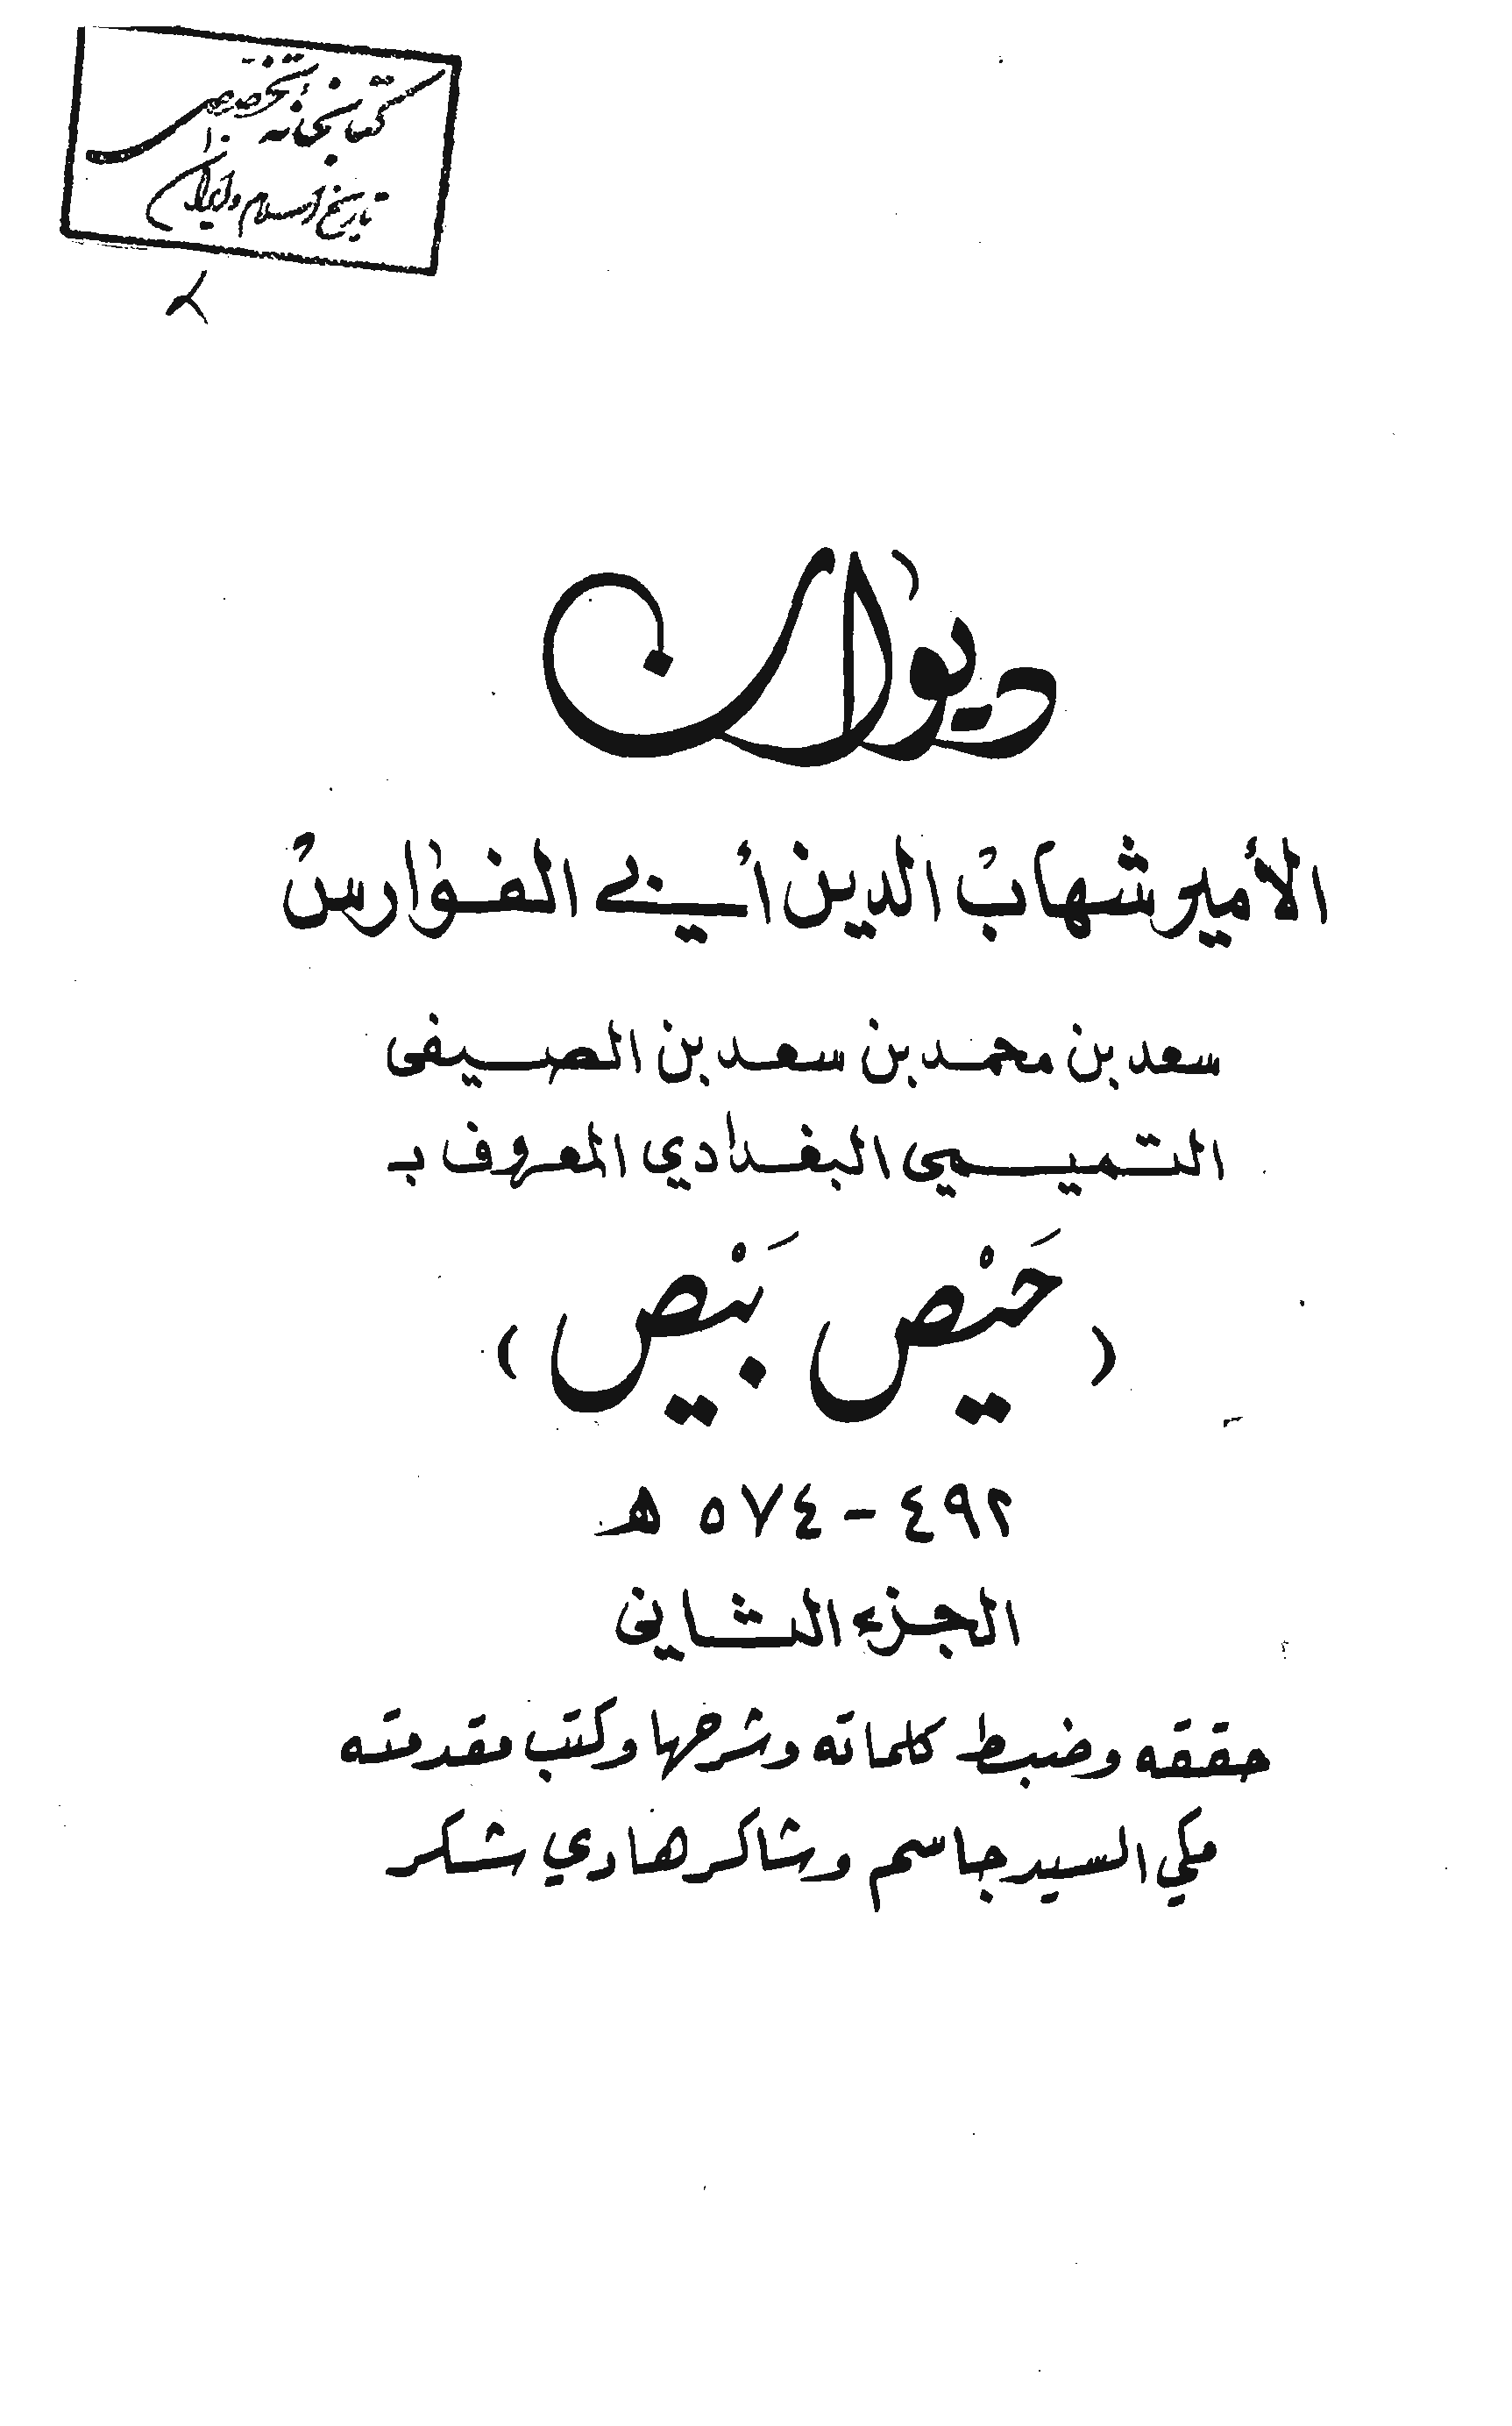 كتابخانه تخصصى
تاريخ اسلام و ايران
ديوان
الأمير شهاب الدين أبي الفوارس
سعد بن محمد بن سعد بن الصيفى
التميمي البغدادي المعروف بـ
( حَيْص بَيْص )
٤٩٢ - ٥٧٤ هـ
الجزء الثانى
حققه وضبط كلماته وشرحها وكتب مقدمته
مكي السيد جاسم وشاكر هادي شكر